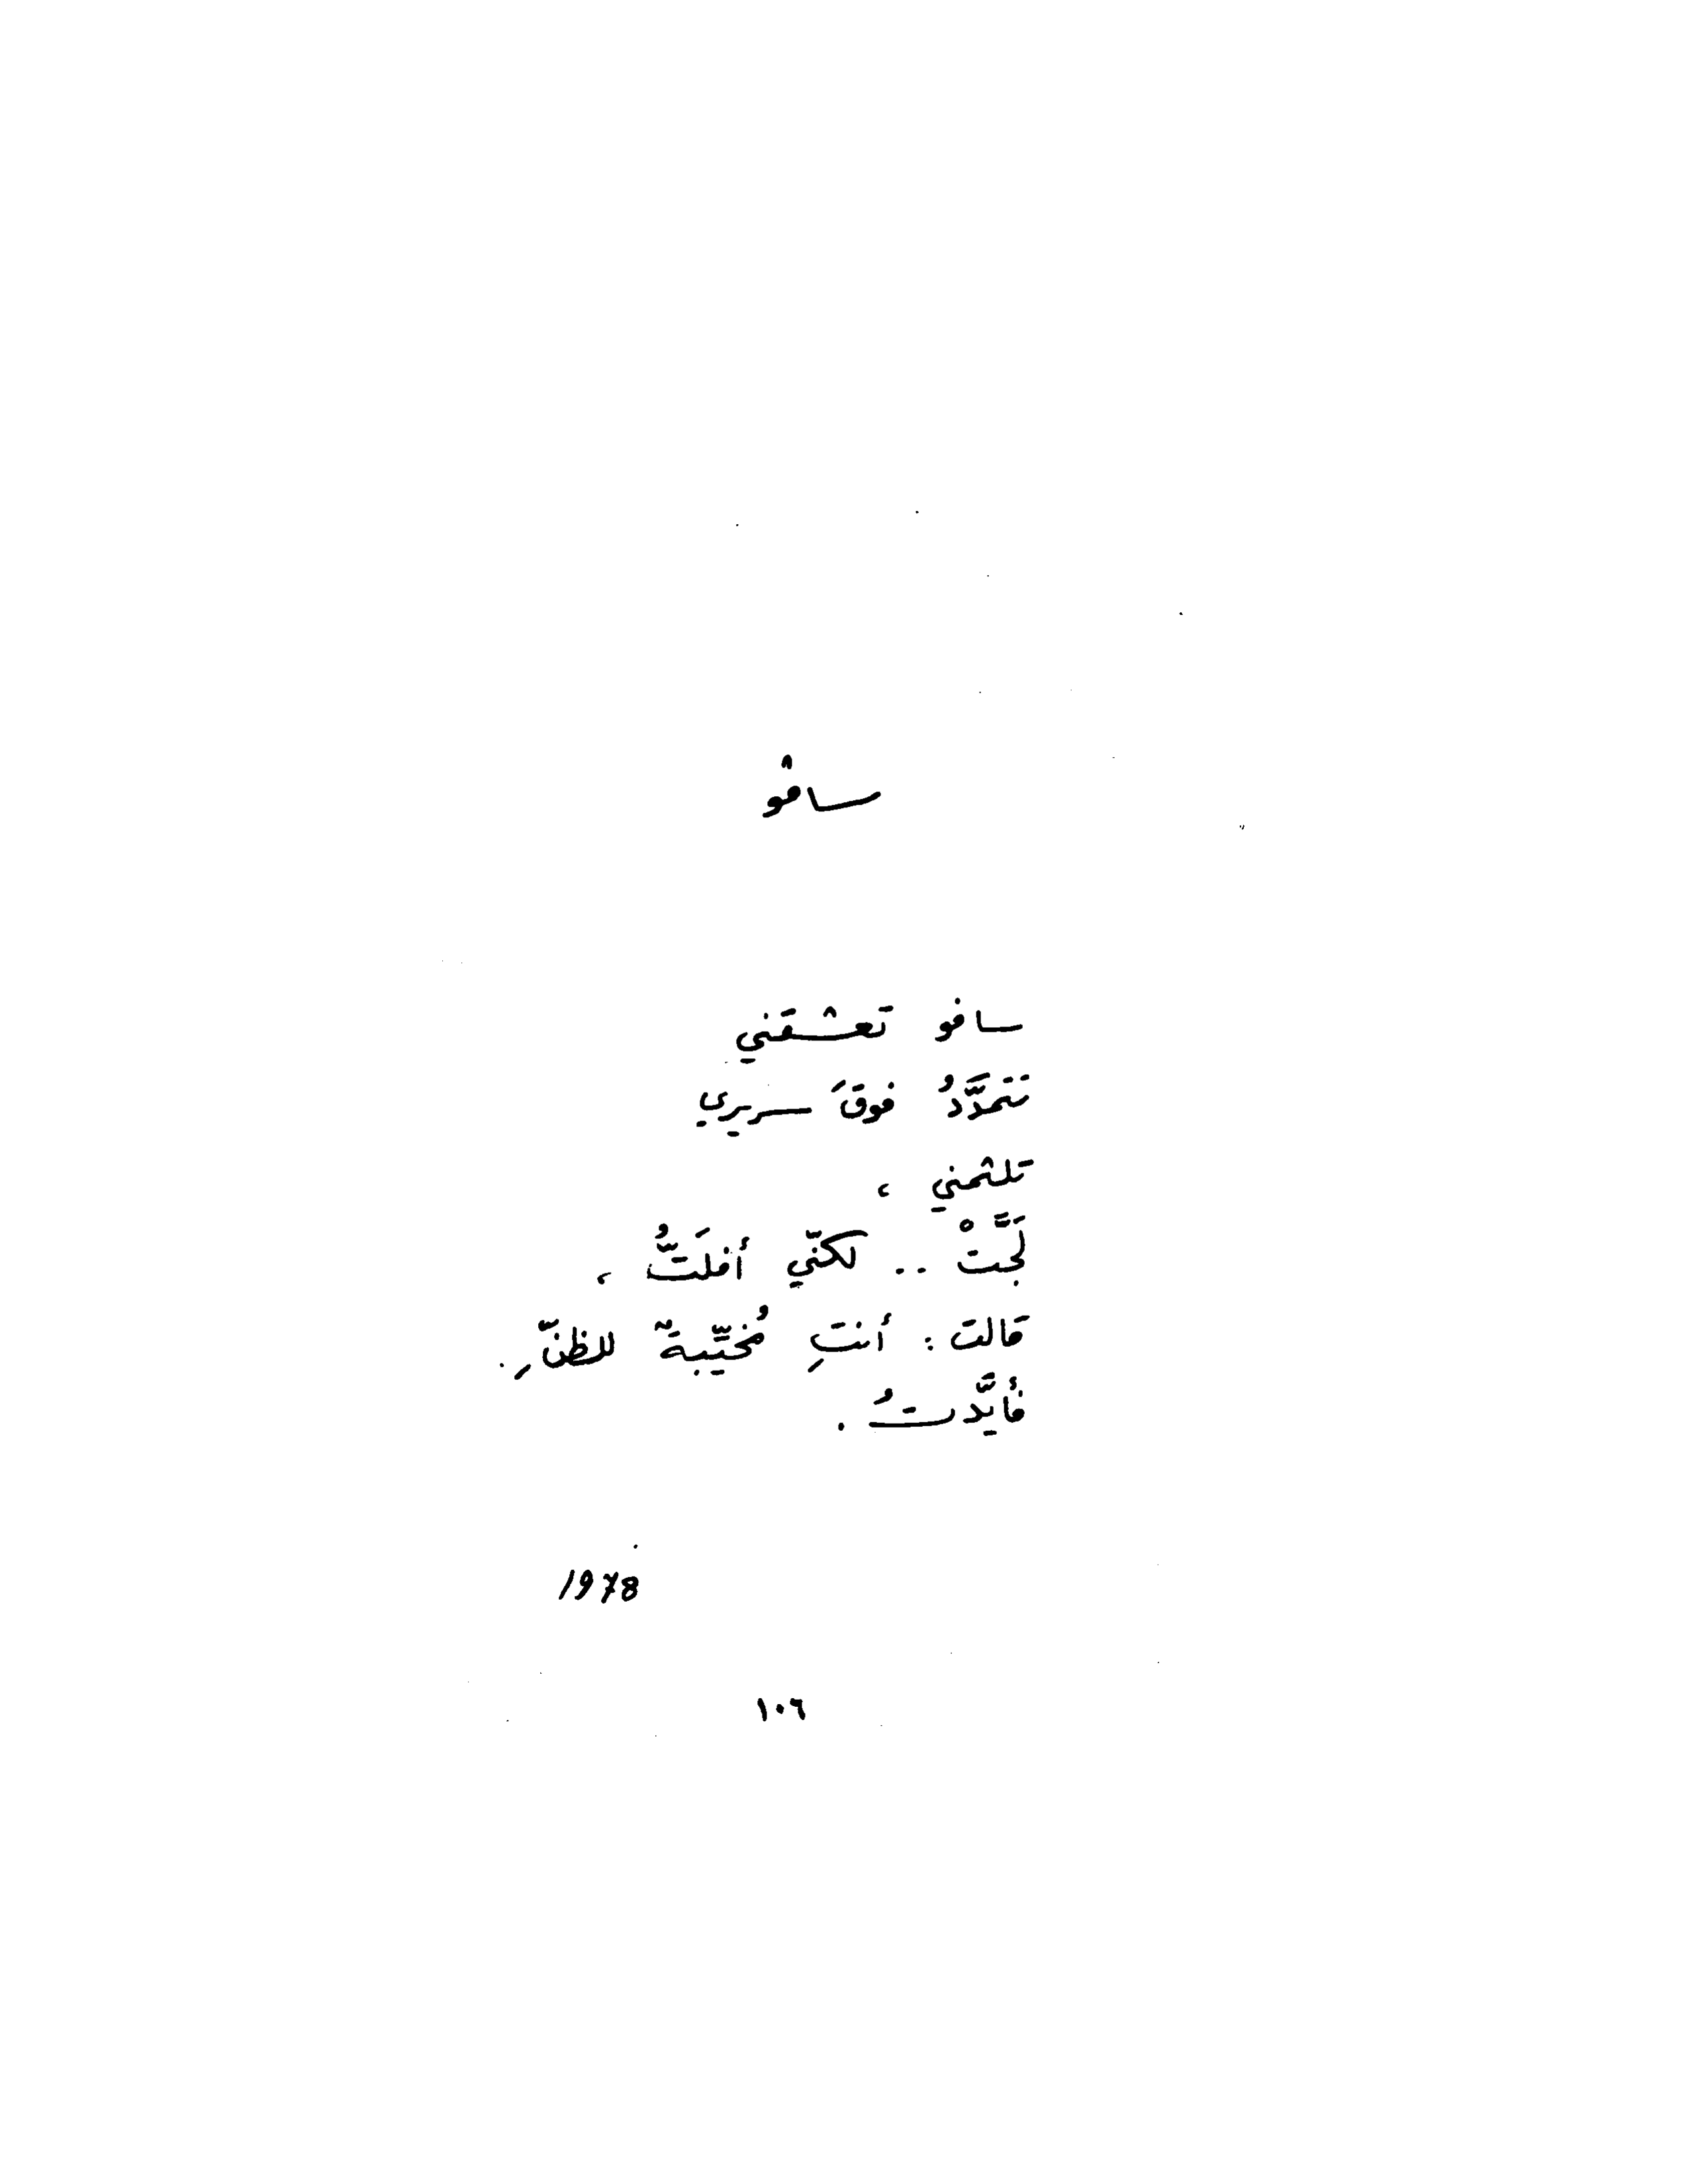 سافو
سافو تعشقني
تتمدَّدُ فوقَ سريري
تلثمني ،
لجَّتْ .. لكنّي أفلَتُّ ،
قالت : أنتِ مُخيّبةٌ للظنِّ .
فأيَّدتُ .
1978
١٠٦